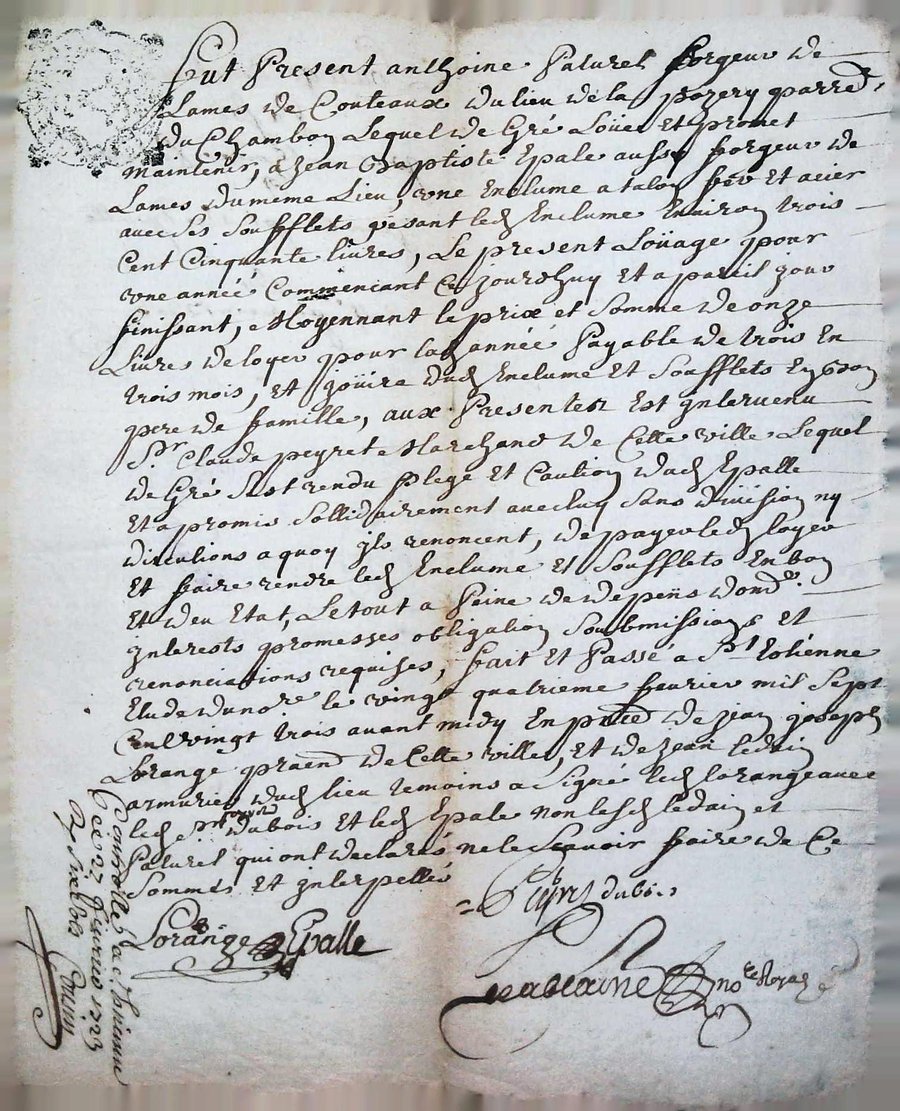 fut Present anthoine Paturel forgeur de
Lames de Couteaux du lieu de la pozery parred
du Chambon Lequel de Gré Loüe Et promet
maintenir, a Jean Baptiste Epale aussy forgeur de
Lames du meme Lieu, une Enclume a talon fer Et acier
avec ses Soufflets pesant led Enclume Environ trois
Cent Cinquante livres, Le present Loüage pour
une année Commencant Ce jourdhuy Et a pareil jour
finissant, Moyennant le prix et Somme de onze
Livres de loyer pour lad année Payable de trois En
trois mois, Et joüire dud Enclume Et Soufflets En bon
pere de famille, aux Presentes Est jntervenu
Sr. Claude peyret Marchand de Cette ville Lequel
de Gré sest rendu plege Et Caution dud Epalle
Et a promis Sollidairement avecluy Sans division ny
discutions a quoy jls renoncent, de payer led loyer
Et faire rendre led Enclume Et Soufflets En bon
Et deu Etat, Le tout a Peine de depens dom
jnterests promesses obligation Soubmissions Et
renonciations requises, fait Et Passé a St Etienne
Etude du nore le vingt quatrieme fevrier mil Sept
Cent vingt trois avant midy En prnce de jean joseph
Lorange pratnd de Cette ville, Et de jean ledain
armurier dud lieu temoins a Signé led lorange avec
led Sr peyret dubois et led Epale non lesd ledain et
Paturel qui ont declaré ne le Scavoir faire de Ce
Sommés Et jnterpellés
Peyret dubois
Lorange Epalle
no.re Royal
Controllé a St Etienne
Ce 27 fevrier 1723